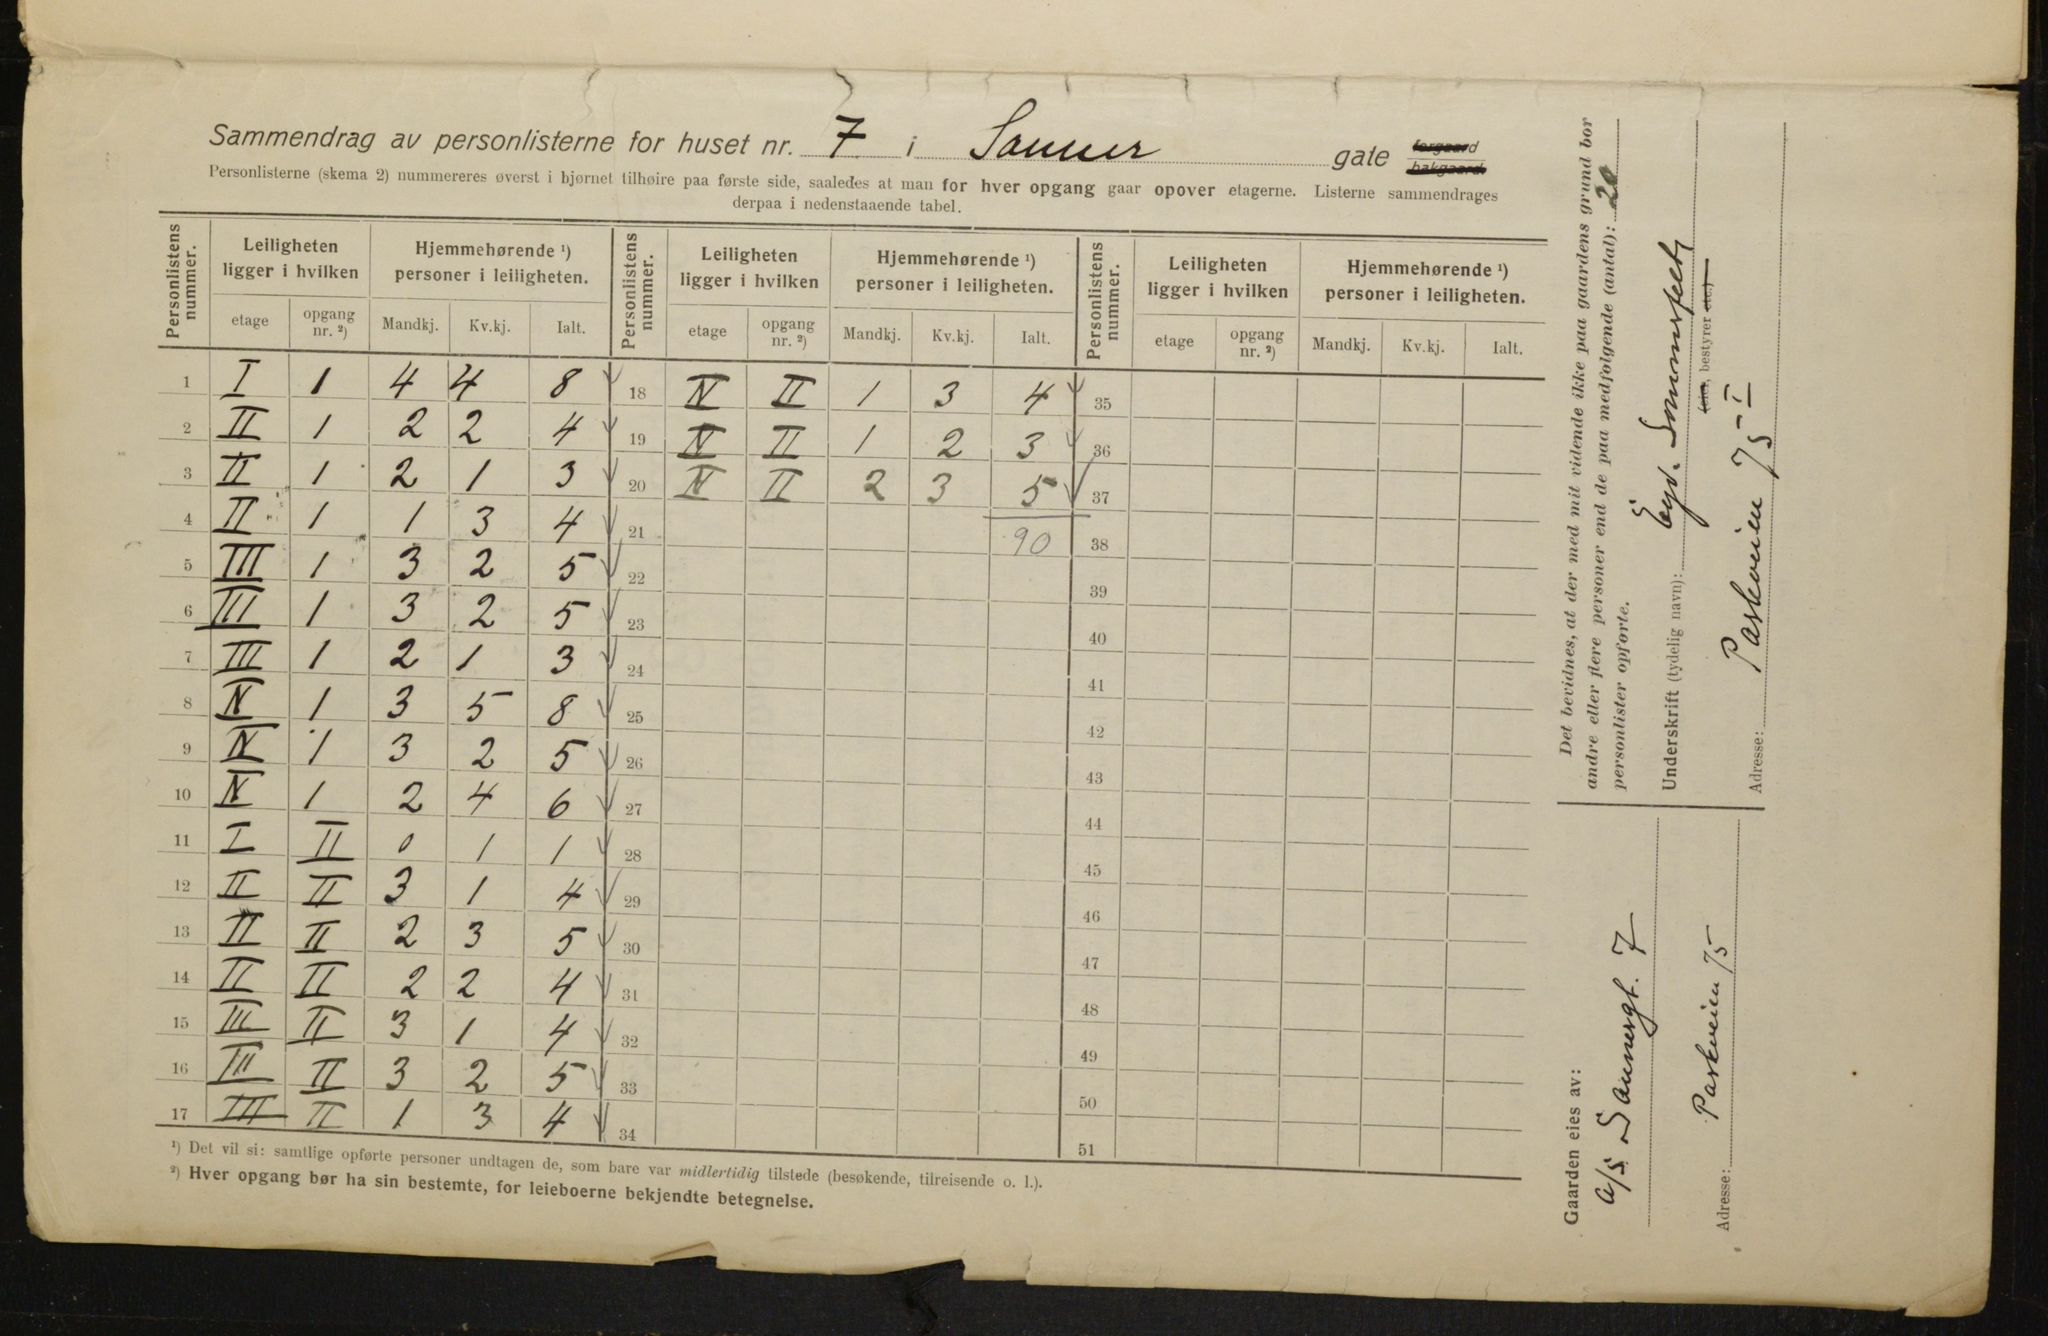 Sammendrag av personlisterne for huset nr. 7 i Sanner gate forgaard bakgaard.
Personlisterne (skema 2) nummereres øverst i bjørnet tilhøire paa første side, saaledes at man for hver opgang gaar opover etagerne. Listerne sammendrages
derpaa i nedenstaaende tabel.
Personlistens nummer. Leiligheten ligger i hvilken Hjemmehørende ¹) personer i leiligheten. Personlistens nummer. Leiligheten ligger i hvilken Hjemmehørende ¹) personer i leiligheten. Personlistens nummer. Leiligheten ligger i hvilken Hjemmehørende ¹) personer i leiligheten.
etage opgang nr. ²) Mandkj. Kv.kj. Ialt. etage opgang nr. ²) Mandkj. Kv.kj. Ialt. etage opgang nr. ²) Mandkj. Kv.kj. Ialt.
1 I 1 4 4 8 18 IV II 1 3 4 35
2 II 1 2 2 4 19 IV II 1 2 3 36
3 II 1 2 1 3 20 IV II 2 3 5 37
4 II 1 1 3 4 21 90 38
5 III 1 3 2 5 22 39
6 III 1 3 2 5 23 40
7 III 1 2 1 3 24 41
8 IV 1 3 5 8 25 42
9 IV 1 3 2 5 26 43
10 IV 1 2 4 6 27 44
11 I II 0 1 1 28 45
12 II II 3 1 4 29 46
13 II II 2 3 5 30 47
14 II II 2 2 4 31 48
15 III II 3 1 4 32 49
16 III II 3 2 5 33 50
17 III II 1 3 4 34 51
¹) Det vil si: samtlige opførte personer undtagen de, som bare var midlertidig tilstede (besøkende, tilreisende o. l.).
²) Hver opgang bør ha sin bestemte, for leieboerne bekjendte betegnelse.
Det bevidnes, at der med mit vidende ikke paa gaardens grund bor
andre eller flere personer end de paa medfølgende (antal): 20
personlister opførte.
Underskrift (tydelig navn): Sommerfeldt
(eier, bestyrer etc.)
Adresse: Parkveien 75 I
Gaarden eies av:
A/S Sannergt. 7
Adresse: Parkveien 75